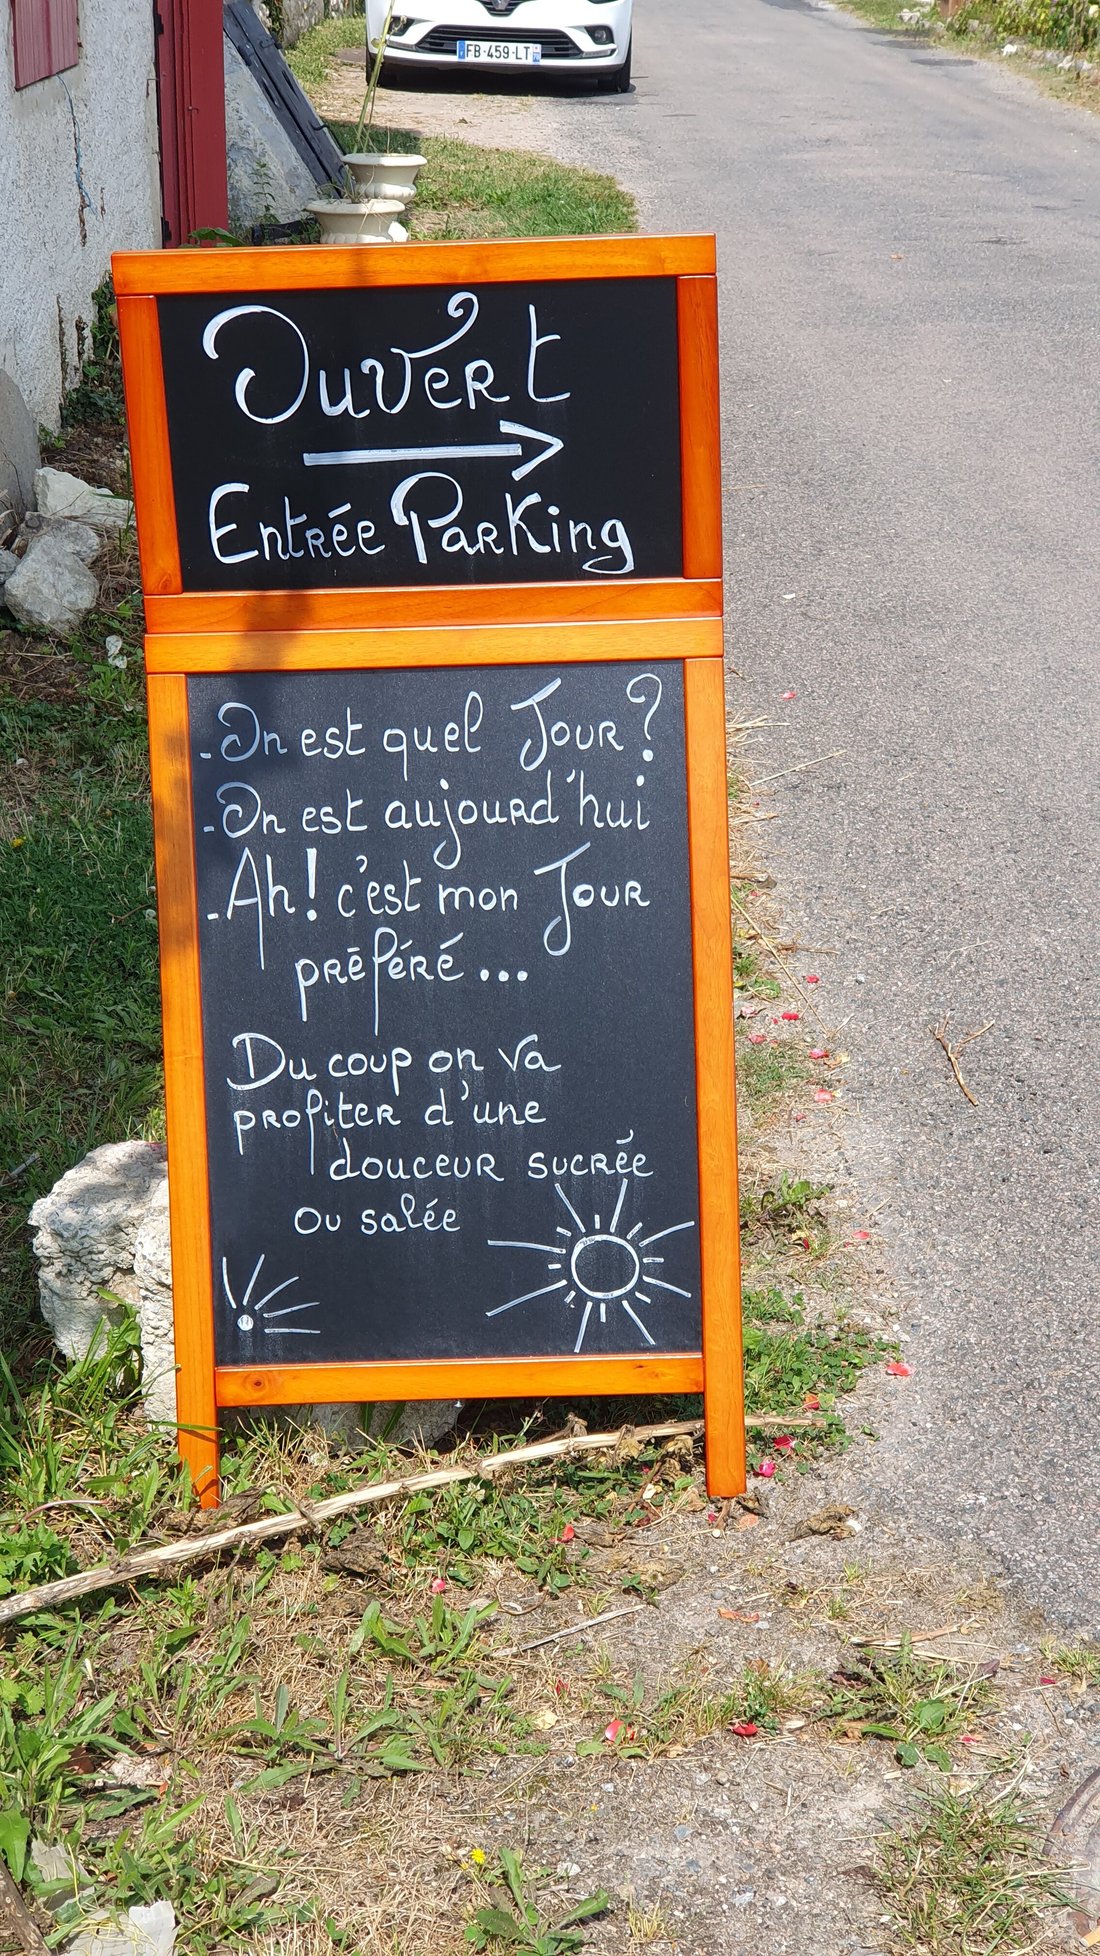 FB-459-LT
Ouvert
Entrée Parking
- On est quel Jour ?
- On est aujourd'hui
- Ah ! c'est mon Jour
préféré...
Du coup on va
profiter d'une
douceur sucrée
ou salée